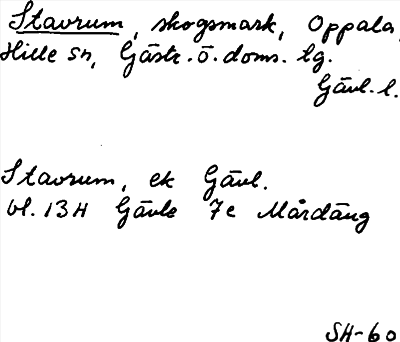 Stavrum, skogsmark, Oppala,
Hille sn, Gästr. ö. doms. tg.
Gävl. l.
Stavrum, ek Gävl.
bl. 13H Gävle 7e Mårdäng
SH-60